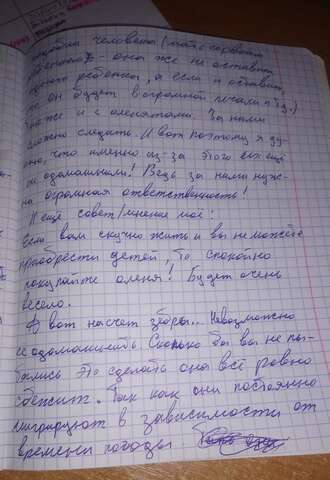 человека (мать с
ребенком, она же не оставит
одного ребенка, а если и оставит,
то он будет в огромной печали и т.д.)
также и с оленятами. За ними
нужно следить. И вот поэтому я ду-
маю, что именно из-за этого их ещё
не одомашнили! Ведь за ними нуж-
на огромная ответственность!
И ещё совет/мнение моё:
Если вам скучно жить и вы не можете
приобрести детей, то спокойно
покупайте оленя! Будет очень
весело.
А вот насчет зебры... Невозможно
ее одомашнить. Сколько бы вы не пы-
тались это сделать она всё равно
сбежит. Так как они постоянно
мигрируют в зависимости от
времени погоды.